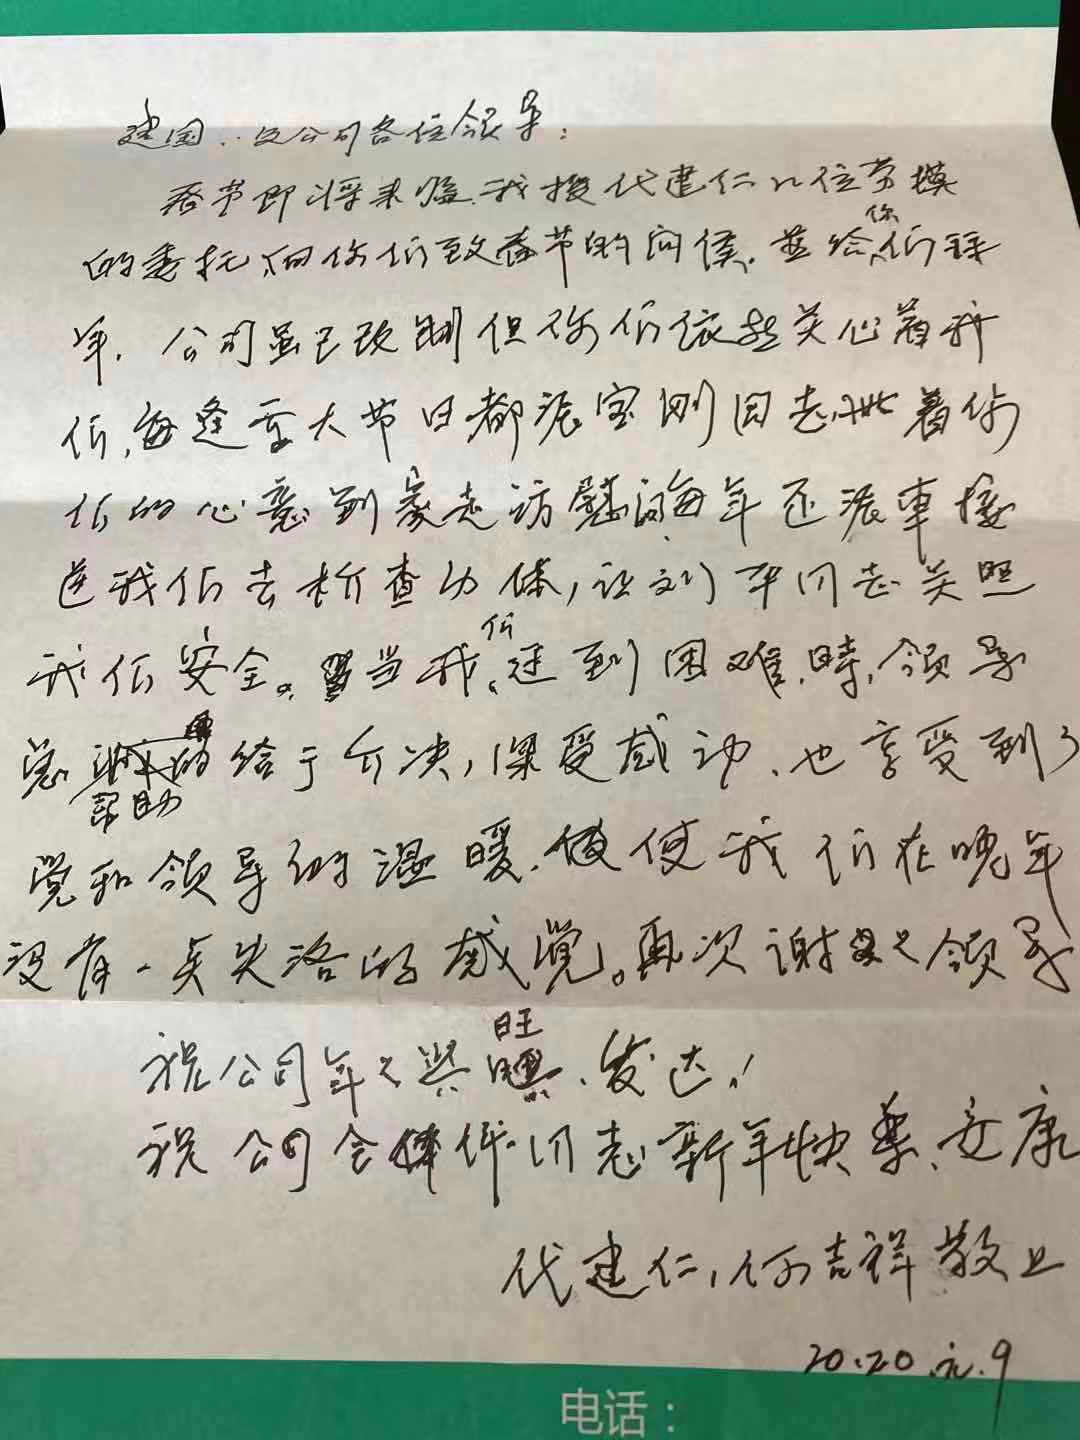 建国..及公司各位领导:
春节即将来临.我授代建仁几位劳模
的委托,向你们致春节的问候.並给你们拜
年.公司虽已改制但你们依然关心着我
们,每逢重大节日都派宝刚同志,带着你
们的心意到家走访慰问每年还派車接
送我们去检查身体,让刘平同志关照
我们安全。当我们遇到困难.時,领导
总 帮助 给于介决,深受感动、也享受到了
党和领导的温暖.使我们在晚年
没有一点失落的感觉。再次谢谢领导
祝公司年々兴旺、发达!
祝公司全体同志新年快乐、安康
代建仁,何吉祥敬上
2020.元.9
电话: